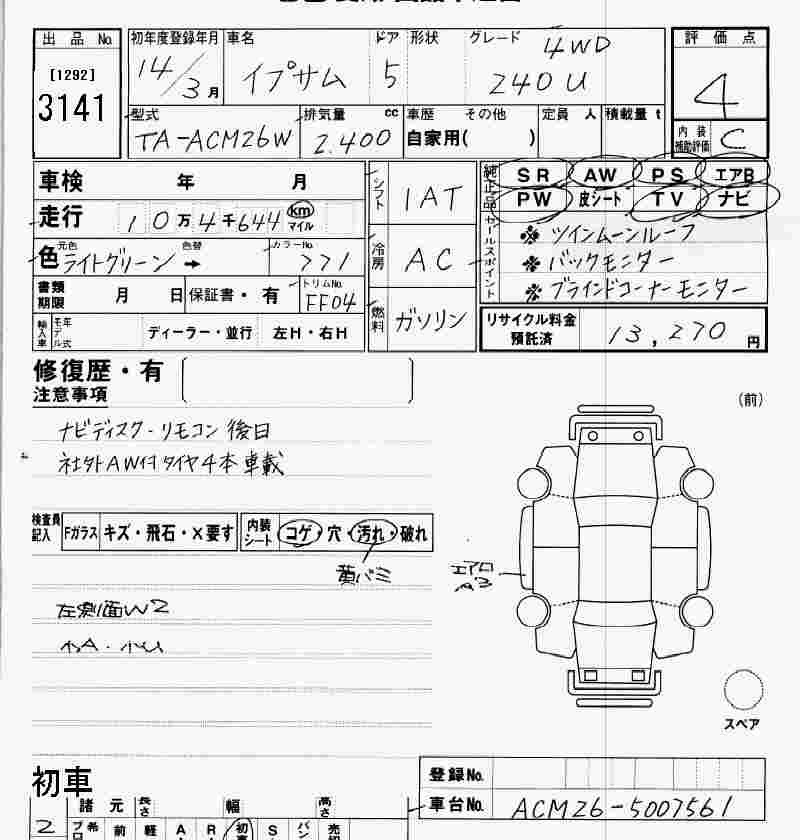 出品No. 初年度登録年月 車名 ドア 形状 グレード 評価点
[1292]
3141
14/3月 イプサム 5 4WD
240U
4
型式 排気量 cc 車歴 その他 定員 人 積載量 t
TA-ACM26W 2.400 自家用( )
内装補助評価 C
車検 年 月
走行 10万4千644 km マイル
色 元色 ライトグリーン 色替 → カラーNo. 771
書類期限 月 日 保証書・有 トリムNo. FF04
輸入車 モデル年式 ディーラー・並行 左H・右H
シフト IAT
冷房 AC
燃料 ガソリン
純正品 SR AW PS エアB
PW 皮シート TV ナビ
セールスポイント
※ ツインムーンルーフ
※ バックモニター
※ ブラインドコーナーモニター
リサイクル料金預託済 13,270 円
修復歴・有
注意事項
(前)
ナビディスク・リモコン後日
社外AW付タイヤ4本車載
検査員記入 Fガラス キズ・飛石・X要す 内装シート コゲ・穴・汚れ・破れ
黄バミ
エアロ
左側面W2
小A・小U
スペア
初車
登録No.
車台No. ACM26-5007561
諸元 長さ 幅 高さ
2